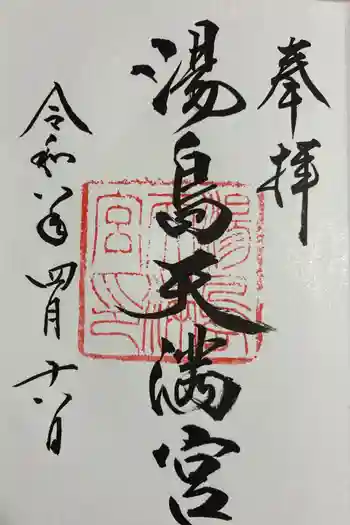 奉拝
湯島天満宮
令和八年四月十八日
湯島天満宮之印